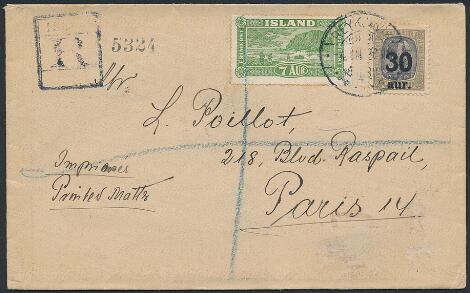 R
5324
ÍSLAND
7 AUR
30
aur.
Mr.
L. Poillot,
218, Blvd. Raspail,
Paris 14
Imprimés
Printed Matter